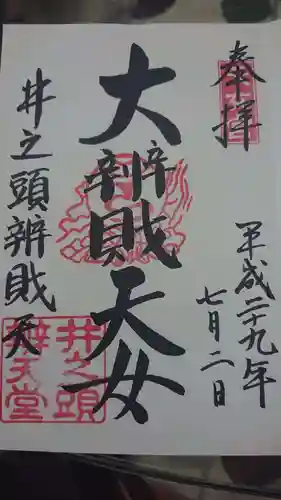 奉拝
平成二十九年
七月二日
大辨財天女
井之頭辨財天
井之頭
辨天堂